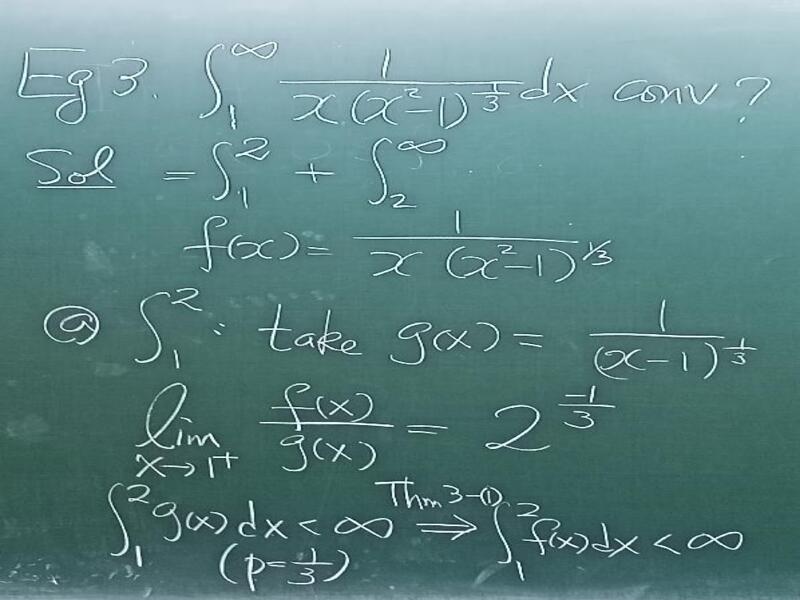 Eg 3. ∫₁^∞ 1/(x(x²-1)^(1/3)) dx conv?
Sol = ∫₁² + ∫₂^∞
f(x) = 1/(x(x²-1)^(1/3))
ⓐ ∫₁² : take g(x) = 1/(x-1)^(1/3)
lim x→1⁺ f(x)/g(x) = 2^(-1/3)
∫₁² g(x)dx < ∞ Thm 3-(1) ⟹ ∫₁² f(x)dx < ∞
(p=1/3)